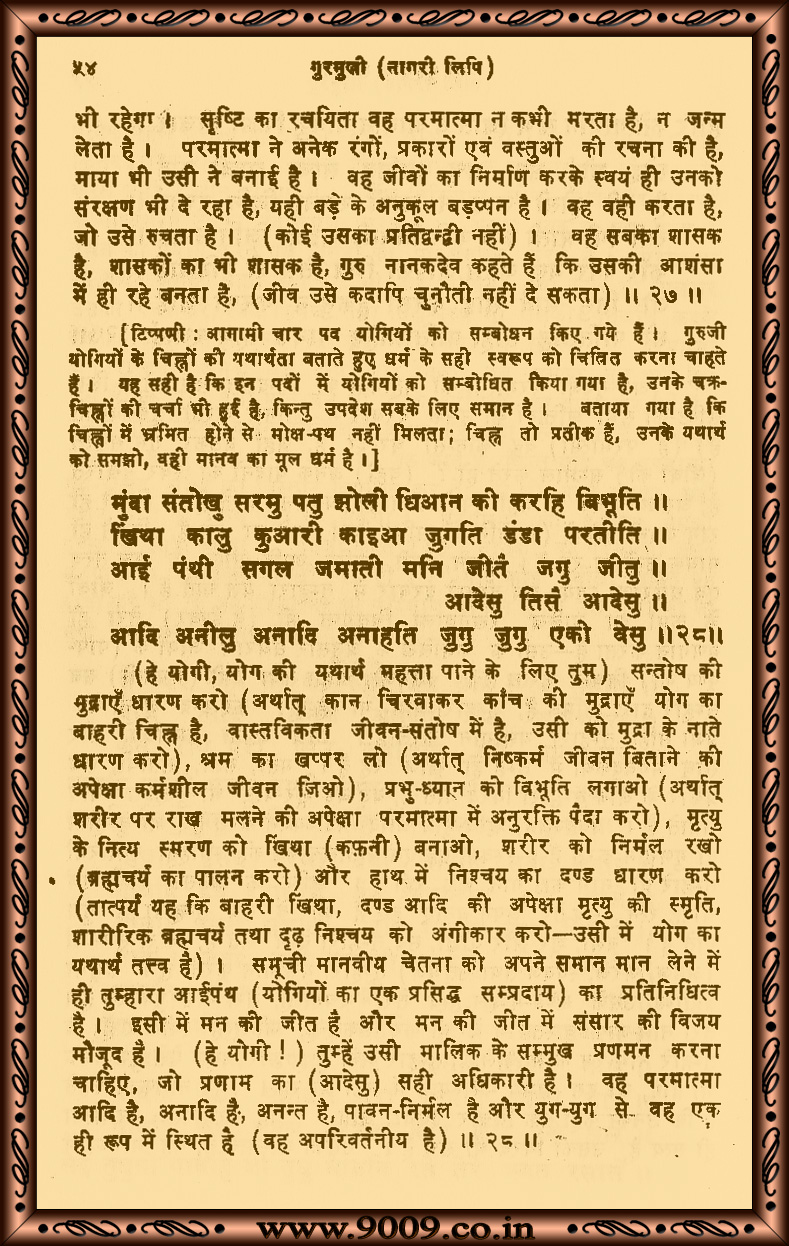 ५४ गुरमुखी (नागरी लिपि)
भी रहेगा । सृष्टि का रचयिता वह परमात्मा न कभी मरता है, न जन्म
लेता है । परमात्मा ने अनेक रंगों, प्रकारों एवं वस्तुओं की रचना की है,
माया भी उसी ने बनाई है । वह जीवों का निर्माण करके स्वयं ही उनको
संरक्षण भी दे रहा है, यही बड़े के अनुकूल बड़प्पन है । वह वही करता है,
जो उसे रुचता है । (कोई उसका प्रतिद्वन्द्वी नहीं) । वह सबका शासक
है, शासकों का भी शासक है, गुरु नानकदेव कहते हैं कि उसकी आशंसा
में ही रहे बनता है, (जीव उसे कदापि चुनौती नहीं दे सकता) ॥ २७ ॥
[टिप्पणी : आगामी चार पद योगियों को सम्बोधन किए गये हैं । गुरुजी
योगियों के चिह्नों की यथार्थता बताते हुए धर्म के सही स्वरूप को चित्रित करना चाहते
हैं । यह सही है कि इन पदों में योगियों को सम्बोधित किया गया है, उनके चक्र-
चिह्नों की चर्चा भी हुई है, किन्तु उपदेश सबके लिए समान है । बताया गया है कि
चिह्नों में भ्रमित होने से मोक्ष-पथ नहीं मिलता; चिह्न तो प्रतीक हैं, उनके यथार्थ
को समझो, वही मानव का मूल धर्म है ।]
मुंदा संतोखु सरमु पतु झोली धिआन की करहि बिभूति ॥
खिंथा कालु कुआरी काइआ जुगति डंडा परतीति ॥
आई पंथी सगल जमाती मनि जीतै जगु जीतु ॥
आदेसु तिसै आदेसु ॥
आदि अनीलु अनादि अनाहति जुगु जुगु एको वेसु ॥२८॥
(हे योगी, योग की यथार्थ महत्ता पाने के लिए तुम) सन्तोष की
मुद्राएँ धारण करो (अर्थात् कान चिरवाकर कांच की मुद्राएँ योग का
बाहरी चिह्न है, वास्तविकता जीवन-संतोष में है, उसी को मुद्रा के नाते
धारण करो), श्रम का खप्पर लो (अर्थात् निष्कर्म जीवन बिताने की
अपेक्षा कर्मशील जीवन जिओ), प्रभु-ध्यान को विभूति लगाओ (अर्थात्
शरीर पर राख मलने की अपेक्षा परमात्मा में अनुरक्ति पैदा करो), मृत्यु
के नित्य स्मरण को खिंथा (कफ़नी) बनाओ, शरीर को निर्मल रखो
(ब्रह्मचर्य का पालन करो) और हाथ में निश्चय का दण्ड धारण करो
(तात्पर्य यह कि बाहरी खिंथा, दण्ड आदि की अपेक्षा मृत्यु की स्मृति,
शारीरिक ब्रह्मचर्य तथा दृढ़ निश्चय को अंगीकार करो—उसी में योग का
यथार्थ तत्त्व है) । समूची मानवीय चेतना को अपने समान मान लेने में
ही तुम्हारा आईपंथ (योगियों का एक प्रसिद्ध सम्प्रदाय) का प्रतिनिधित्व
है । इसी में मन की जीत है और मन की जीत में संसार की विजय
मौजूद है । (हे योगी ! ) तुम्हें उसी मालिक के सम्मुख प्रणमन करना
चाहिए, जो प्रणाम का (आदेसु) सही अधिकारी है । वह परमात्मा
आदि है, अनादि है, अनन्त है, पावन-निर्मल है और युग-युग से वह एक
ही रूप में स्थित है (वह अपरिवर्तनीय है) ॥ २८ ॥
www.9009.co.in